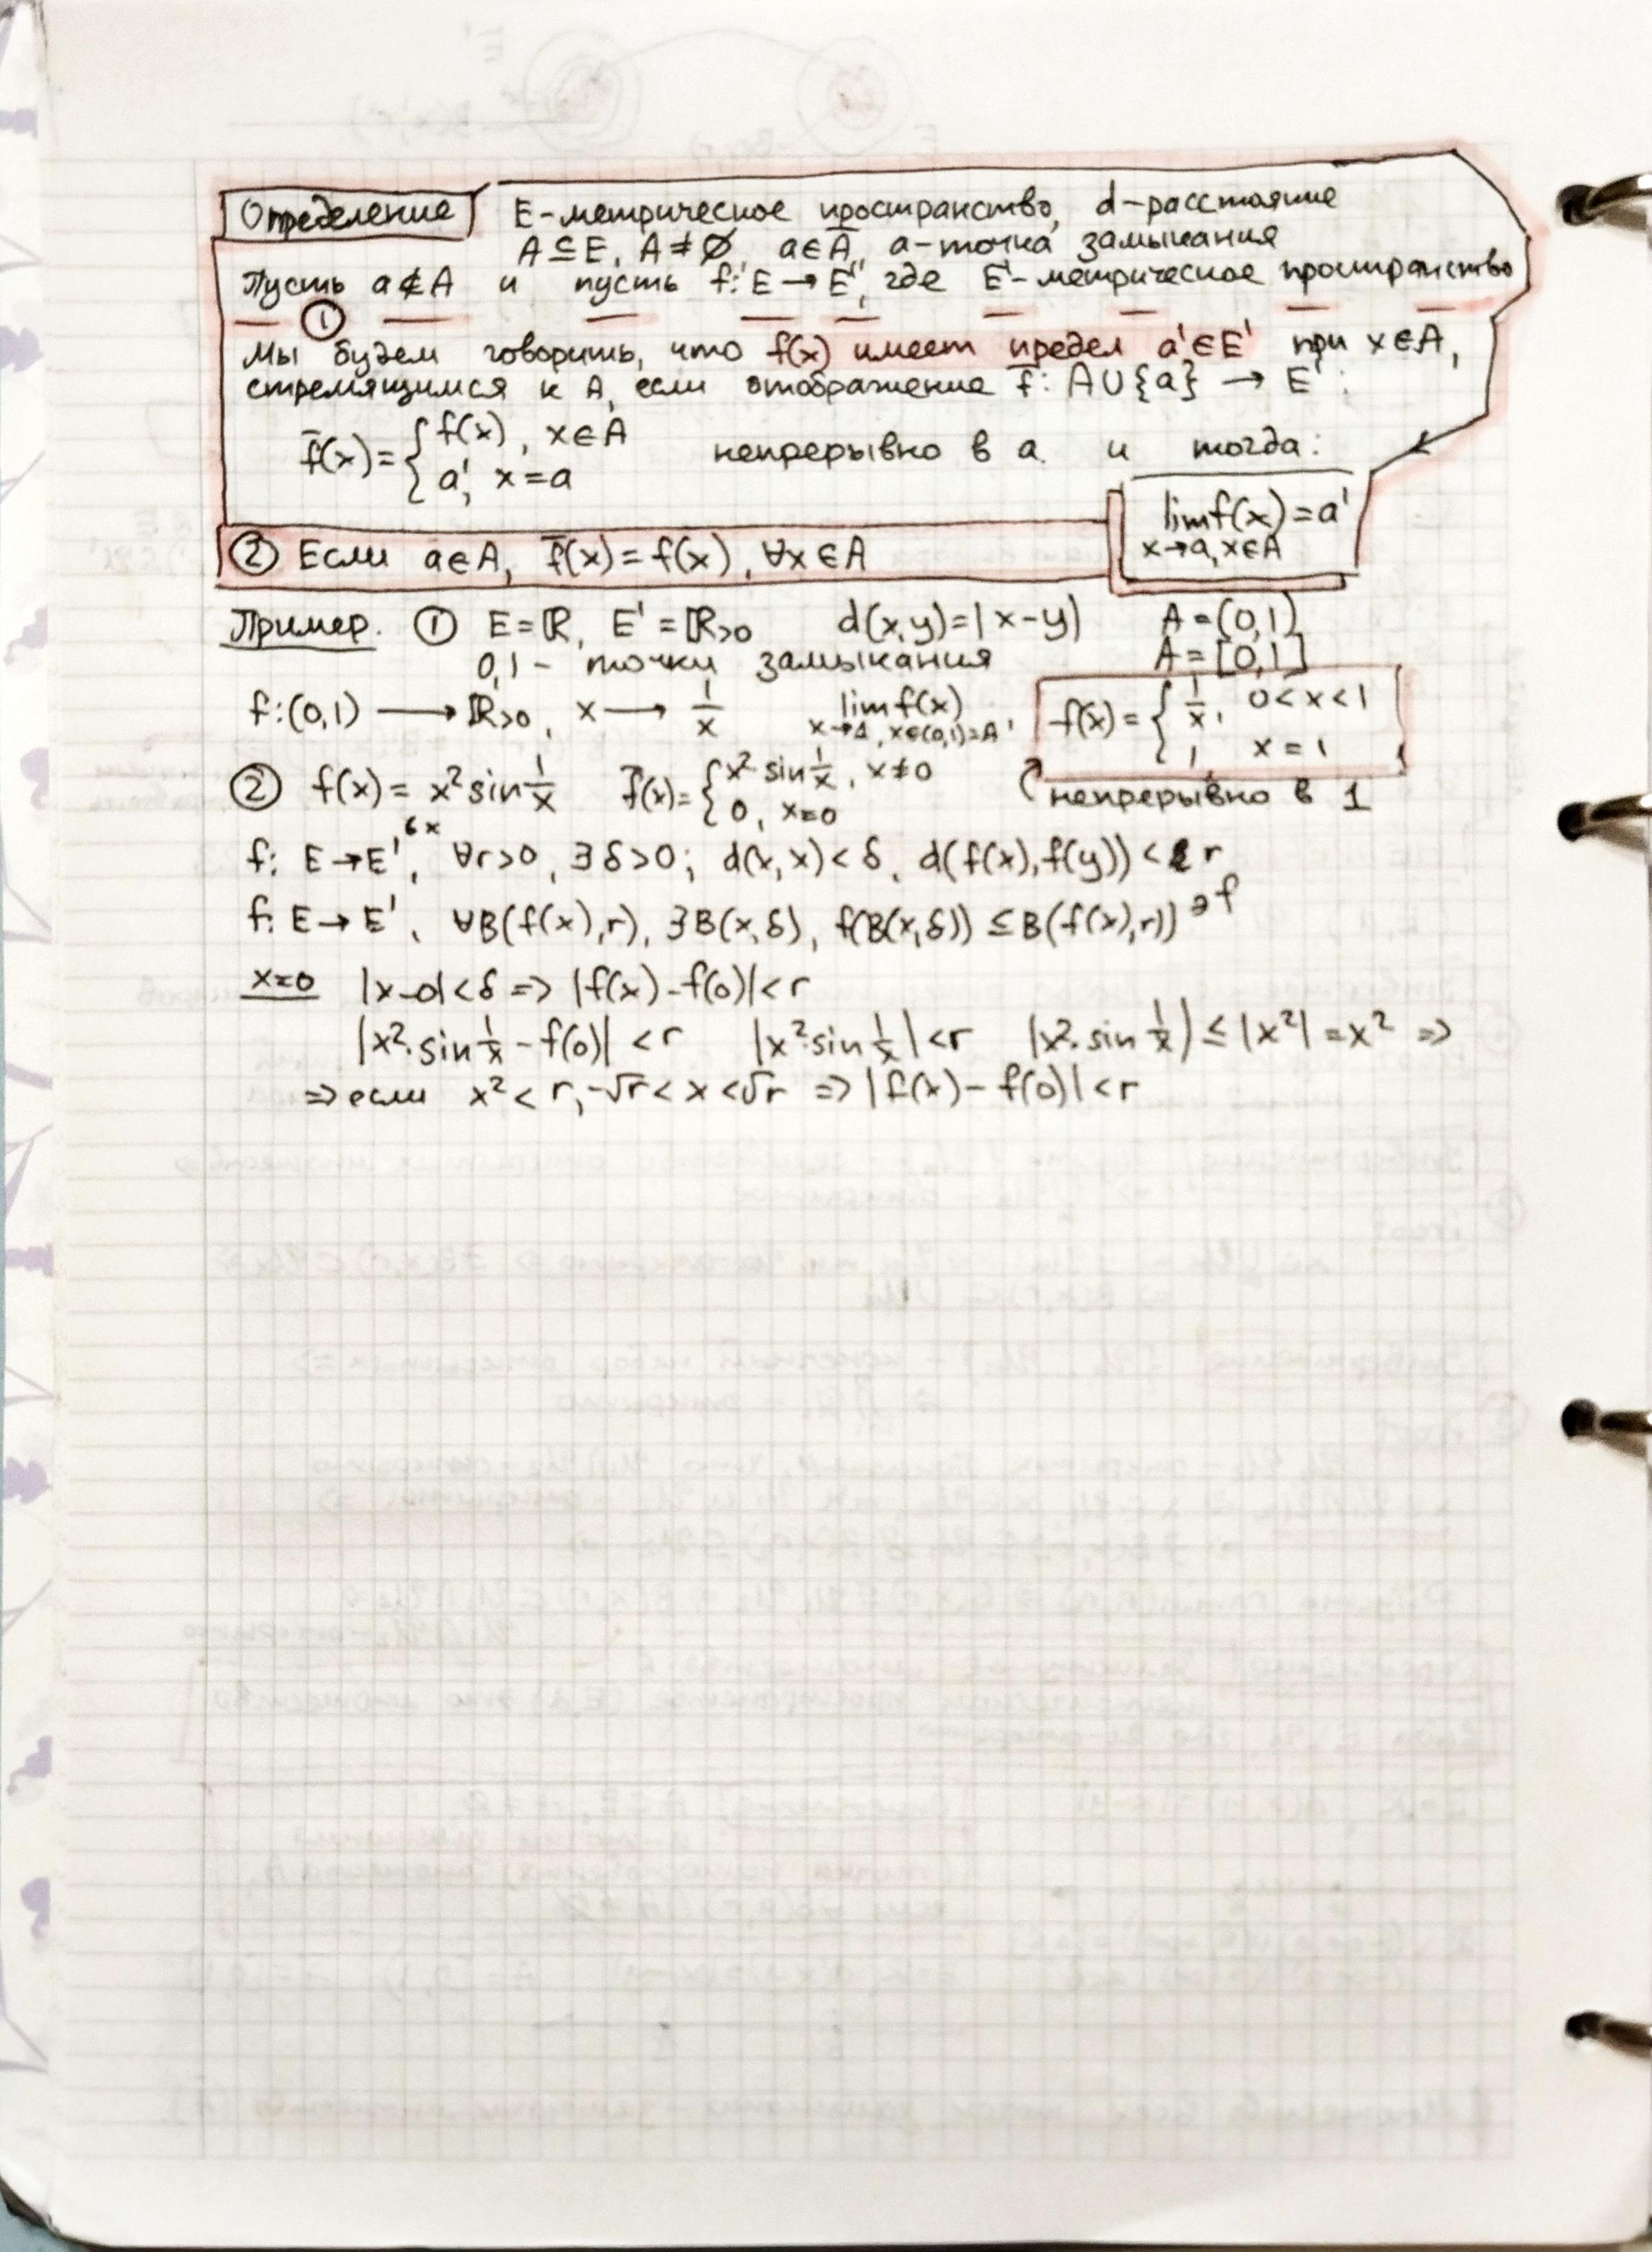 Определение E-метрическое пространство, d-расстояние
A⊆E, A≠∅, a∈Ā, a-точка замыкания
Пусть a∉A и пусть f: E→E', где E'-метрическое пространство
①
Мы будем говорить, что f(x) имеет предел a'∈E' при x∈A,
стремящимся к A, если отображение f̄: A∪{a} → E':
f̄(x)={ f(x), x∈A
a', x=a непрерывно в a и тогда:
lim f(x)=a'
x→a, x∈A
② Если a∈A, f̄(x)=f(x), ∀x∈A
Пример. ① E=ℝ, E'=ℝ>0 d(x,y)=|x-y| A=(0,1)
0,1 - точки замыкания Ā=[0,1]
f:(0,1) → ℝ>0, x → 1/x lim f(x)
x→1, x∈(0,1)=A
f̄(x)={ 1/x, 0<x<1
1, x=1
непрерывно в 1
② f(x)= x² sin 1/x f̄(x)={ x² sin 1/x, x≠0
0, x=0
f: E→E', в x ∀r>0, ∃δ>0; d(x,x)<δ, d(f(x),f(y))< r
f: E→E', ∀B(f(x),r), ∃B(x,δ), f(B(x,δ)) ⊆B(f(x),r))
x=0 |x-0|<δ => |f(x)-f(0)|<r
|x²·sin 1/x - f(0)| <r |x²·sin 1/x|<r |x²·sin 1/x|≤|x²|=x² =>
=> если x²<r, -√r<x<√r => |f(x)-f(0)|<r